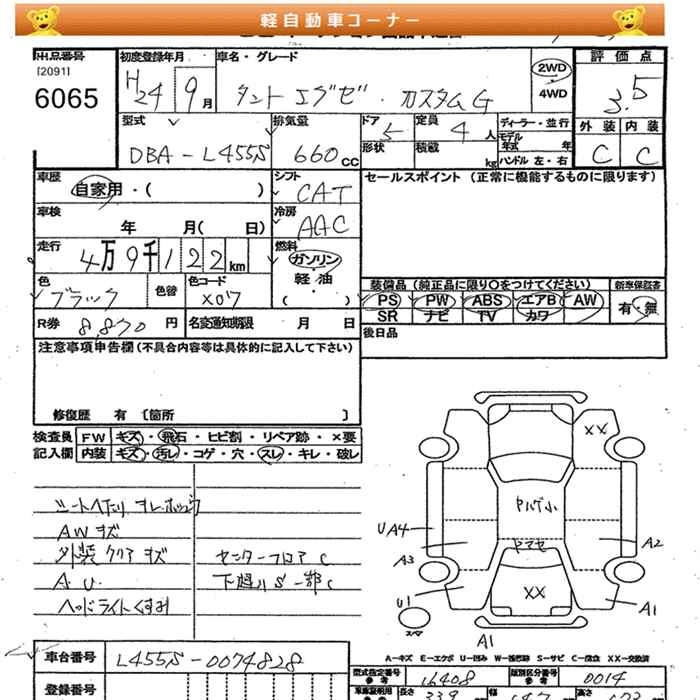 軽自動車コーナー
出品番号 初度登録年月 車名・グレード 2WD 評価点
[2091] H24 9月 タント エグゼ・カスタムG 4WD 3.5
6065
型式 排気量 ドア 5 定員 4人 ディーラー・並行 外装 内装
DBA-L455S 660cc 形状 積載 kg モデル年式 年 C C
ハンドル 左・右
車歴 シフト セールスポイント (正常に機能するものに限ります)
自家用・( ) CAT
車検 冷房
年 月( 日) AAC
走行 燃料
4万9千122km ガソリン・軽油
色 色替 色コード ( ) 装備品 (純正品に限り○をつけてください) 新車保証書
ブラック X07 PS PW ABS エアB AW 有・無
SR ナビ TV カワ
R券 8,870円 名変通知期限 月 日 後日品
注意事項申告欄 (不具合内容等は具体的に記入して下さい)
修復歴 有 〔箇所 〕
検査員 FW キズ・飛石・ヒビ割・リペア跡・×要
記入欄 内装 キズ・汚レ・コゲ・穴・スレ・キレ・破レ
AWキズ
外装クリアキズ センターフロアC
A U. 下廻りS 一部C
ヘッドライトくすみ
XX
ヤルゲ小
UA4 ヤマセ
A3 A2
XX
U1 A1
スペア
A1
A-キズ E-エクボ U-凹み W-補修跡 S-サビ C-腐食 XX-交換済
車台番号 L455S-0074828
型式指定番号 16408 類別区分番号 0014
登録番号 長さ 339 幅 147 高さ